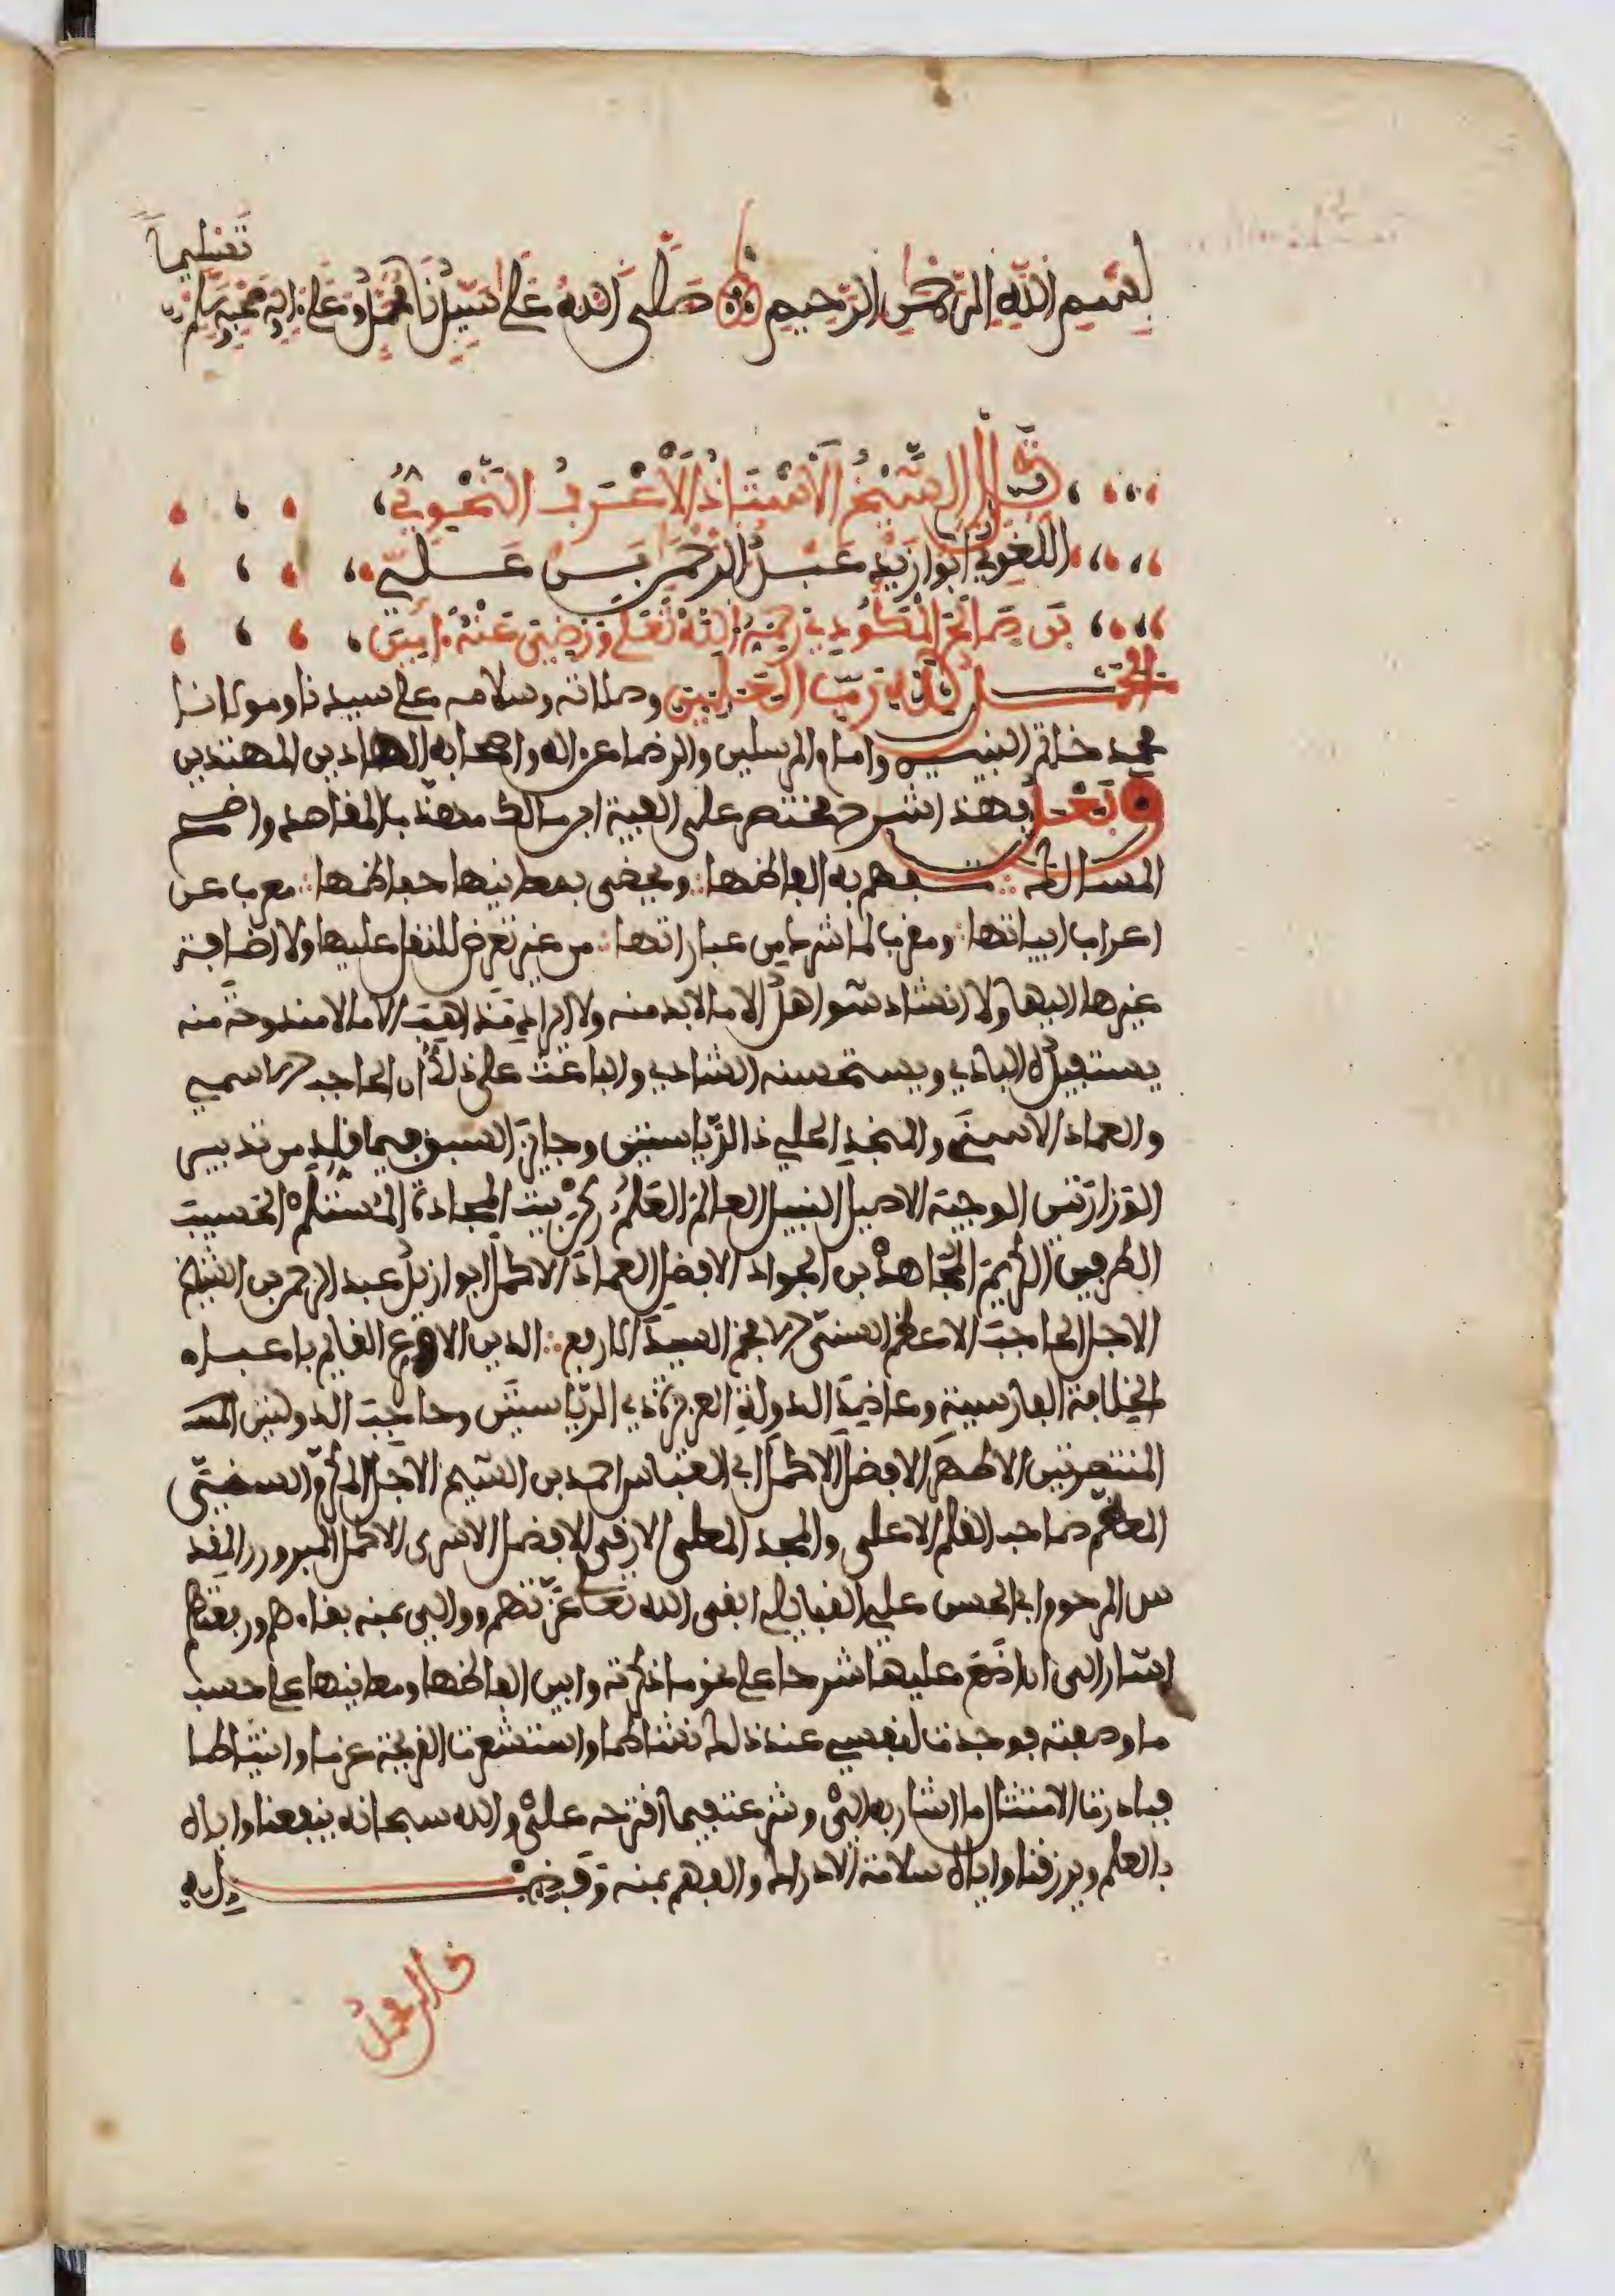 تسليما
بسم الله الرحمن الرحيم صلى الله على سيدنا محمد وعلى اله وصحبه وسلم
قال الشيخ الاستاذ الاعرف النحوي
اللغوي ابوا زيد عبد الرحمن بن علي
بن صالح المكودي رحمه الله تعلى ورضي عنه امين
الحمد لله رب العالمين وصلاته وسلامه على سيدنا ومولانا
محمد خاتم النبيين وامام المرسلين والرضا عن اله واصحابه الهادين المهتدين
وبعد فهذا شرح مختصر على الفية ابن مالك مهذب المقاصد واضح
المسالك تفهم به الفاظها ويحضى بمعانيها حفاظها معرب عن
اعراب ابياتها ومقرب لما شرد من عباراتها من غير تعرض للنقل عليها ولا اضافة
غيرها اليها ولا انشاد شواهد الا ما لا بد منه ولا ايراد مذاهب الا ما لا مندوحة منه
يستفيد له البادي ويستحسنه الشادي والباعث على ذلك ان الحاجب الاسمى
والعماد الاسنى والمنجد الحلي ذا الرياستين وحايز السبق فيما قلد من تدبير
الوزارتين الوجيه الاصيل النبيل العالم العلم بيت المجادة الحسيب
الطرفين الكريم المجاهد بن الجواد الافضل العماد الاكمل ابوا زيد عبد الرحمن بن الشيخ
الاجل الحاجب الاعظم السني السيد الارفع الدين الاورع القايم باعباء
الخلافة الفارسية وعاضد الدولة ذي الرياستين وحاجب الدولتين
المنتصرتين الاطهر الافضل الاكمل ابي العباس احمد بن الشيخ الاجل السني
المعظم صاحب القلم الاعلى والمجد المعلى الارقى الافضل الاسرى الاكمل المبرور المقد
س المرحوم ابي الحسن علي القبايلي ابقى الله تعلى عزتهم ووالى بمنه بقاءهم ورفعتهم
اشار الى ان اضع عليها شرحا على نحو ما ذكرته وابين الفاظها ومعانيها على حسب
ما وصفته فوجدت لنفسي عند ذلك نشاطا واستشعرت القريحة عزما وانبساطا
فبادرت الامتثال ما اشار به الي وشرعت فيما اقترحه علي والله سبحانه ينفعنا واياه
بالعلم ويرزقنا واياه سلامة الادراك والفهم بمنه وفضله
قال محمد